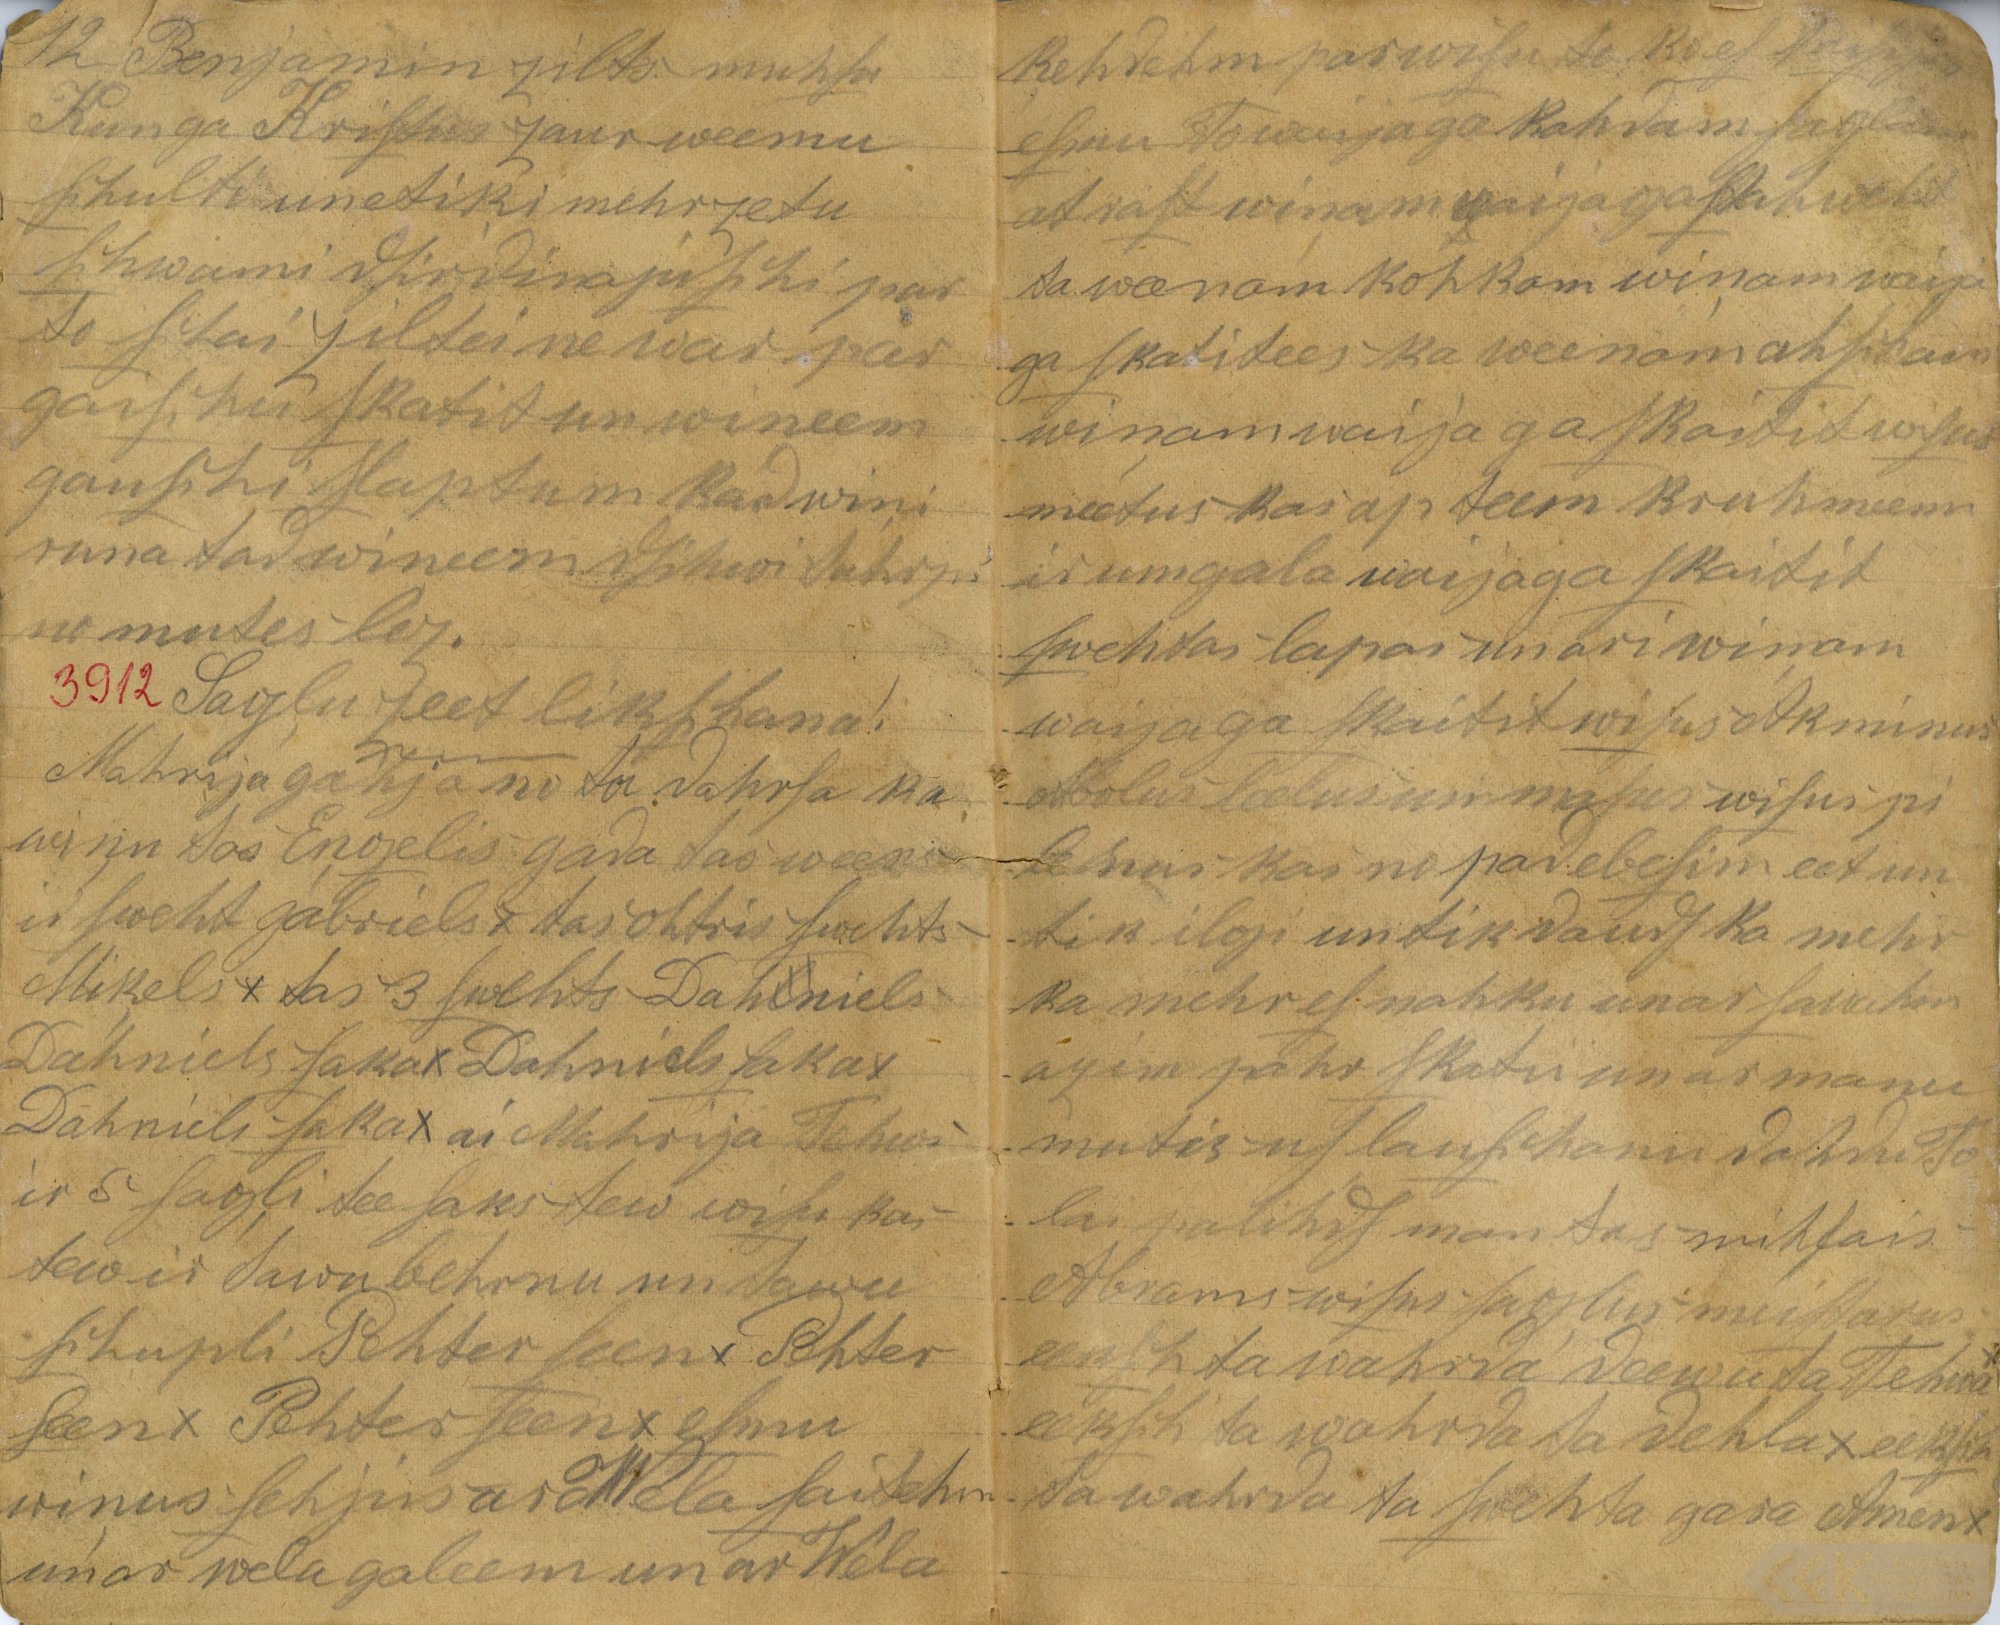 12 Benjamin zilts muhsu
Kunga Kristus zaur weemu
schulti un etiķi mehrzetu
schwami dsirdinajuschi par
to schai ziltei ne war par
gaischu skatit un wineem
gauschi slaptum kad wini
runa tad wineem dsihwi tahrpi
no mutes lez.
3912 Saglu seet likschana!
Mahrija gahja no ta dahrsa ka
winu tas Engelis gada tas weens
ir sweht gabriels x tas ohtris swehts
Miķels x tas 3 swehts Dahniels
Dahniels saka x Dahniels saka x
Dahniels saka x ai Mahrija Tehws
ir 5 sagli tee saks tew wisu kas
tew ir tawu behrnu un tawu
schupli Pehter seen x Pehter
seen x Pehter seen x esmu
winus sehjis ar Wela saitehm
un ar wela galeem un ar Wela
kehdehm par wisu to ko es
esmu To waijaga kahdam saglam
at rast winam waijaga stahweht
ta weenam kohkam winam waija
ga skatitees ka weenam ahscham
winam waijaga skaitit wisus
meetus kas ap teem kruhmeem
ir um gala waijaga skaitit
swehtas lapas un ari winam
waijaga skaitit wisus Akminus
Abolus leelus un masus wisus pi
leenus kas no padebesim eet un
tik ilgi un tik daudf ka mehr
ka mehr es nahku un ar sawahm
azim pahr skatu un ar manu
mutis us lauschanu dahdu To
lai palihdf man tas mihfais
Abrams wisus saglus meistarus
eeksch ta wahrda deewa ta Tehwa x
eeksch ta wahrda ta dehla x eeksch
ta wahrda ta swehta gara Amen x